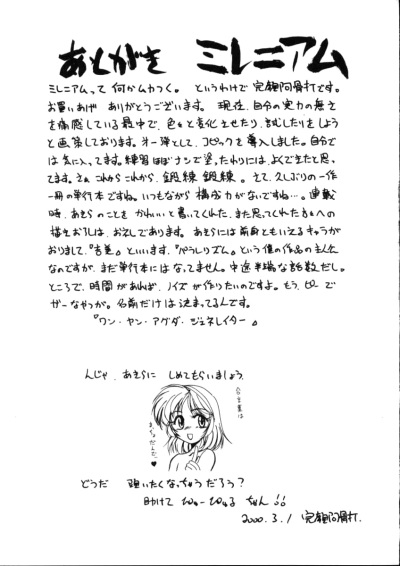 あとがき ミレニアム
ミレニアムって何かムカつく。というわけで完顔阿骨打です。
お買いあげ ありがとうございます。現在、自分の実力の無さ
を痛感している最中で、色々と変化させたり、試したりをしよう
と画策しております。オ一弾として、コピックを導入しました。自分で
は気に入ってます。練習ほぼナシで塗ったわりには、よくできたと思っ
てます。さぁ これからこれから、鍛練 鍛練。さて、久しぶりの一作
一冊の単行本ですね。いつもながら 構成力がないですね…。連載
時、あきらのことを かわいいと書いてくれた、また思ってくれた方々への
描きおろしは、お忘しであります。あきらには前身ともいえるキャラが
おりまして、『吉美』といいます。『ぺうしリズム』という僕の作品の主人公
なのですが、まだ単行本にはなってません。中途半端な話数だし。
ところで、時間があれば、ノイズが作りたいのですよ。もう、ピーで
ガーなやつが。名前だけは決まってるんです。
『ワン・ヤン・アグダ・ジェネレイター』
んじゃ、あきらに しめてもらいましょう。
今言葉は
どうだ 抱いたくなっちゃうだろう?
助けて ひゅーひゅる ちゃん!!
2000.3.1 完顔阿骨打.